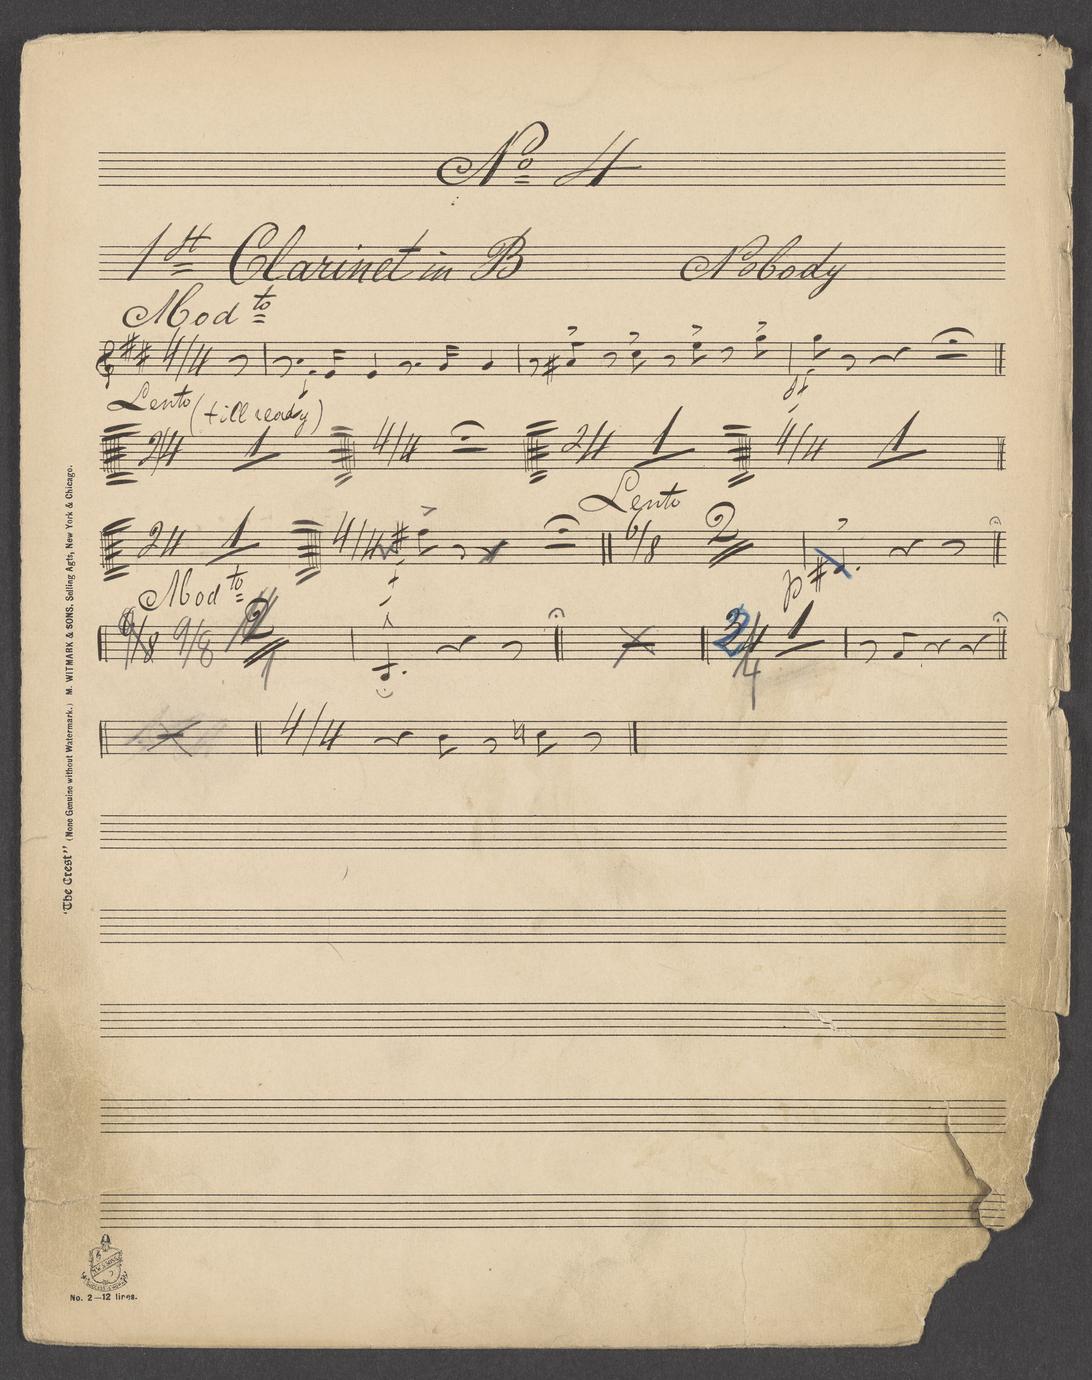 No 4
1st Clarinet in B Nobody
Modto
4/4
Lento (till ready)
2/4 1 4/4 2/4 1 4/4 1
Lento
2/4 1 4/4 6/8 2
Modto p
6/8 9/8 2 1 2/4 1
4
4/4
"The Crest" (None Genuine without Watermark.) M. WITMARK & SONS, Selling Agts, New York & Chicago.
No. 2—12 lines.